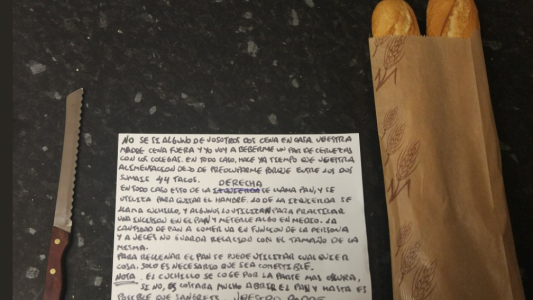 NO SE SI ALGUNO DE VOSOTROS DOS CENA EN CASA. VUESTRA
MADRE CENA FUERA Y YO VOY A BEBERME UN PAR DE CERVEZAS
CON LOS COLEGAS. EN TODO CASO, HACE YA TIEMPO QUE VUESTRA
ALIMENTACION DEJO DE PREOCUPARME PORQUE ENTRE LOS DOS
SUMAIS 44 TACOS.
DERECHA
EN TODO CASO ESTO DE LA IZQUIERDA SE LLAMA PAN, Y SE
UTILIZA PARA QUITAR EL HAMBRE. LO DE LA IZQUIERDA SE
LLAMA CUCHILLO, Y ALGUNOS LO UTILIZAN PARA PRACTICAR
UNA INCISION EN EL PAN Y METERLE ALGO EN MEDIO. LA
CANTIDAD DE PAN A COMER VA EN FUNCION DE LA PERSONA
Y A VECES NO GUARDA RELACION CON EL TAMAÑO DE LA
MISMA.
PARA RELLENAR EL PAN SE PUEDE UTILIZAR CUALQUIER
COSA. SOLO ES NECESARIO QUE SEA COMESTIBLE.
NOTA. EL CUCHILLO SE COGE POR LA PARTE MAS OSCURA,
SI NO, OS COSTARA MUCHO ABRIR EL PAN Y HASTA ES
POSIBLE QUE SANGREIS. VUESTRO PADRE